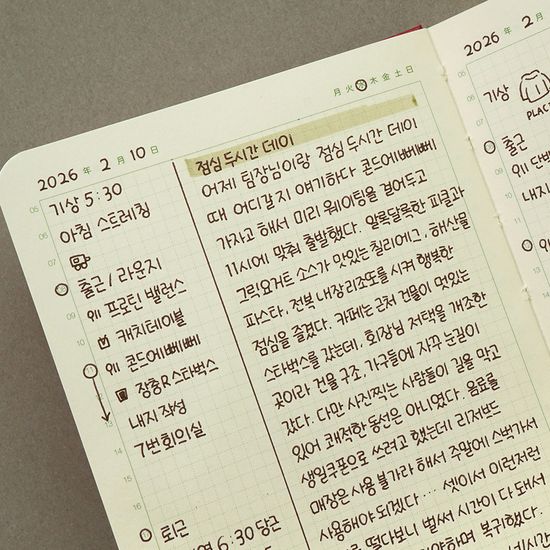 2026 年 2 月 10 日
月 火 水 木 金 土 日
05
기상 5:30
06
아침 스트레칭
07
출근 / 라운지
외 프로틴 밸런스
09
캐치테이블
10
외 콘드에뻬뻬
장충R스타벅스
내지 작성
13
7번회의실
14
15
16
퇴근
6:30 당근
점심 두시간 데이
어제 팀장님이랑 점심 두시간 데이
때 어디갈지 얘기하다 콘드에뻬뻬
가자고 해서 미리 웨이팅을 걸어두고
11시에 맞춰 출발했다. 알록달록한 피클과
그릭요거트 소스가 맛있는 칠리에그, 해산물
파스타, 전복 내장 리조또를 시켜 행복한
점심을 즐겼다. 카페는 근처 건물이 멋있는
스타벅스를 갔는데, 회장님 저택을 개조한
곳이라 건물 구조, 가구들에 자꾸 눈길이
갔다. 다만 사진찍는 사람들이 길을 막고
있어 쾌적한 동선은 아니였다. 음료를
생일쿠폰으로 쓰려고 했는데 리저브드
매장은 사용 불가라 해서 주말에 스벅가서
사용해야 되겠다... 셋이서 이런저런
떠다보니 벌써 시간이 다 돼서
야하며 복귀했다.
2026 年 2 月
05
기상
출근
외 단백
외